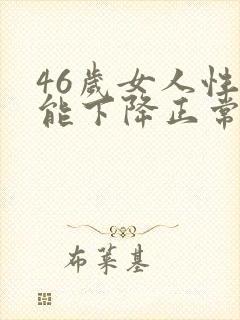 46岁女人性
能下降正常
布莱基